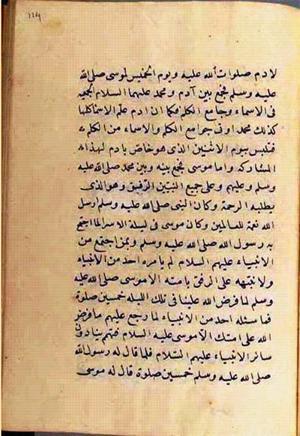 لادم صلوات الله عليه ويوم الخميس لموسى صلى الله
عليه وسلم فجمع بين آدم ومحمد عليهما السلام الجمعية
فى الاسماء وجامع الكلم فكما ان ادم علم الاسماء كلها
كذلك محمد اوتى جوامع الكلم والاسماء من الكلم
فتلبس بيوم الاثنين الذى هو خاص بادم لهذه
المشاركة واما موسى فجمع بينه وبين محمد صلى الله عليه
وسلم وعليهم وعلى جميع النبيين الرفق وهو الذى
يطلبه الرحمة وكان النبى صلى الله عليه وسلم ارسل
الله رحمة للعالمين وكان موسى فى ليلة الاسراء لما اجتمع
به رسول الله صلى الله عليه وسلم وبمن اجتمع من
الانبياء عليهم السلام لم يامره احد من الانبياء
ولا نبهه على الرفق بامته الا موسى صلى الله عليه
وسلم لما فرض الله علينا فى تلك الليلة خمسين صلوة
فما سئله احد من الانبياء لما رجع عليهم ما فرض
الله على امتك الا موسى عليه السلام
سائر الانبياء عليهم السلام فلما قال له رسول الله
صلى الله عليه وسلم خمسين صلوة قال له موسى